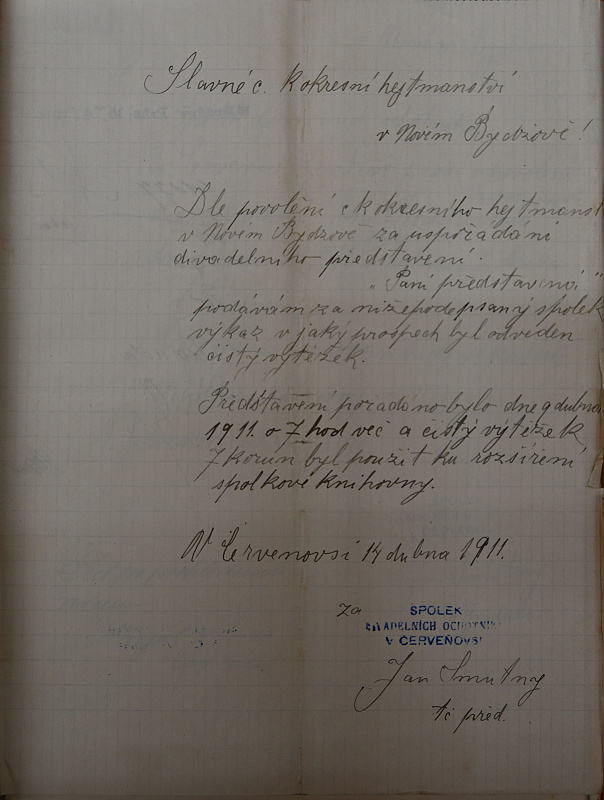 Slavné c. k okresní hejtmanství
v Novém Bydžově!
Dle povolění c k okresního hejtmanst
v Novém Bydžově za uspořádání
divadelního představení.
„Paní představená"
podávám za nížepodepsaný spolek
výkaz v jaký prospěch byl odveden
čistý výtěžek.
Představení pořádáno bylo dne 9 dubna
1911. o 7 hod več a čistý výtěžek
7 korun byl použit ku rozšíření
spolkové knihovny.
V Červenovsi 14 dubna 1911.
za
SPOLEK
DIVADELNÍCH OCHOTNÍK
V ČERVEŇOVSI
Jan Smutný
tč před.